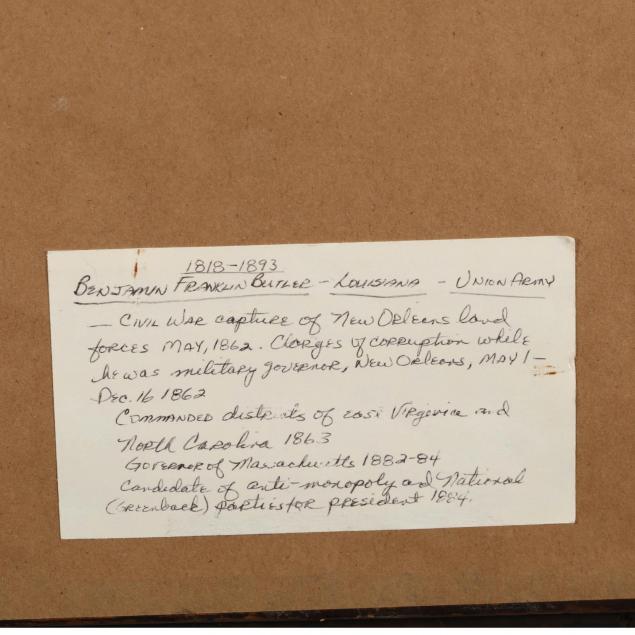 1818-1893
BENJAMIN FRANKLIN BUTLER - LOUISIANA - UNION ARMY
— CIVIL WAR capture of New Orleans land
forces MAY, 1862. Charges of corruption while
he was military governor, New Orleans, MAY 1-
Dec. 16 1862
COMMANDED districts of east Virginia and
North Carolina 1863
Governor of Massachusetts 1882-84
Candidate of anti-monopoly and National
(Greenback) parties for president 1884.